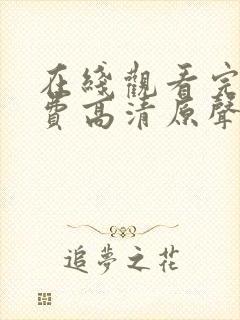 在綫觀看完
費高清原聲
追夢之花